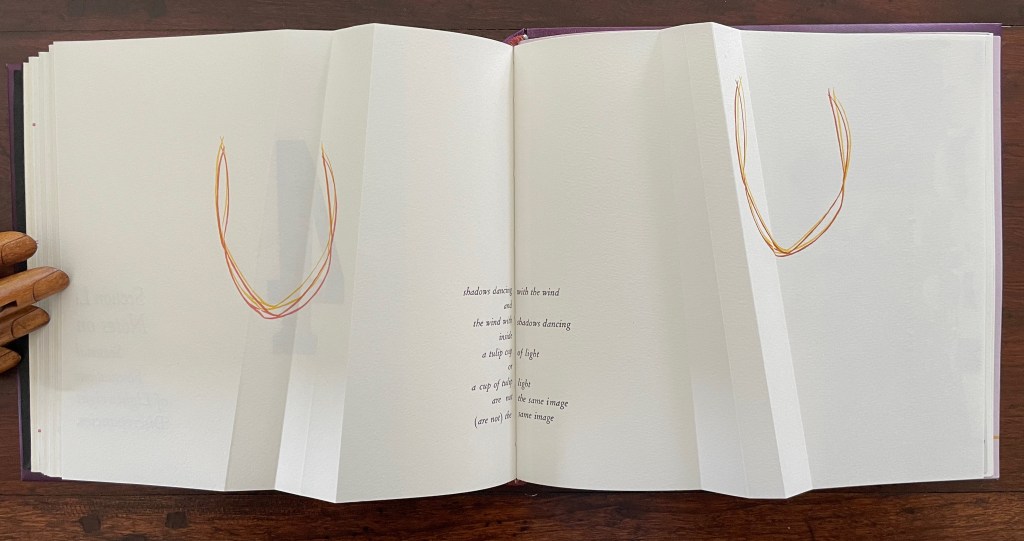 shadows dancing with the wind
and
the wind with shadows dancing
inside
a tulip cup of light
or
a cup of tulip light
are not the same image
(are not) the same image